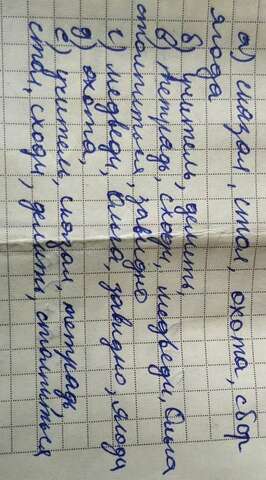 а) сказал, стол, охота, сбор
ягода
б) учитель, делить,
в) тетрадь, сходи, медведи,
столпится, завидно
г) медведи, завидно, ягода
д) охота,
е) учитель, сказал, тетрадь
стол, сходи, делить, столпиться